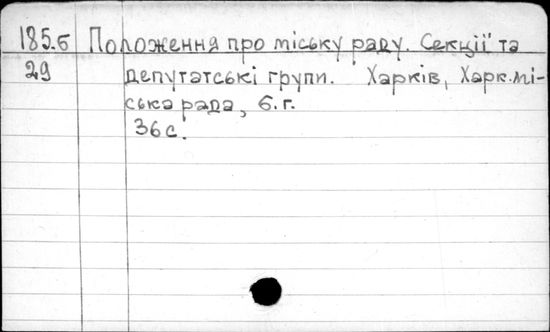 185.б Положення про міську раду. Секції та
29 депутатські групи. Харків, Харк. мі-
ська рада, б. г.
36 с.